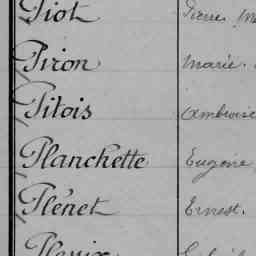 Piot Pierre
Piron Marie.
Pitois Ambroise
Planchette Eugène
Plénet Ernest.